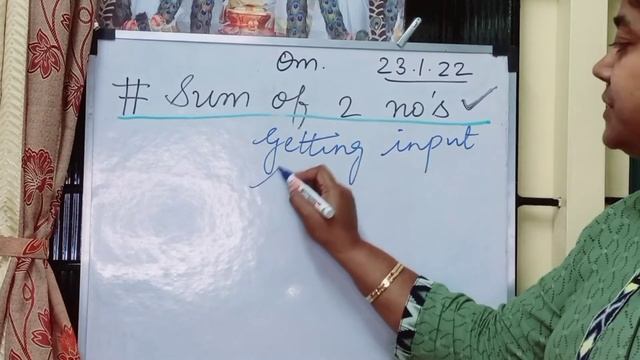 Om. 23.1.22
# Sum of 2 no's ✓
Getting input